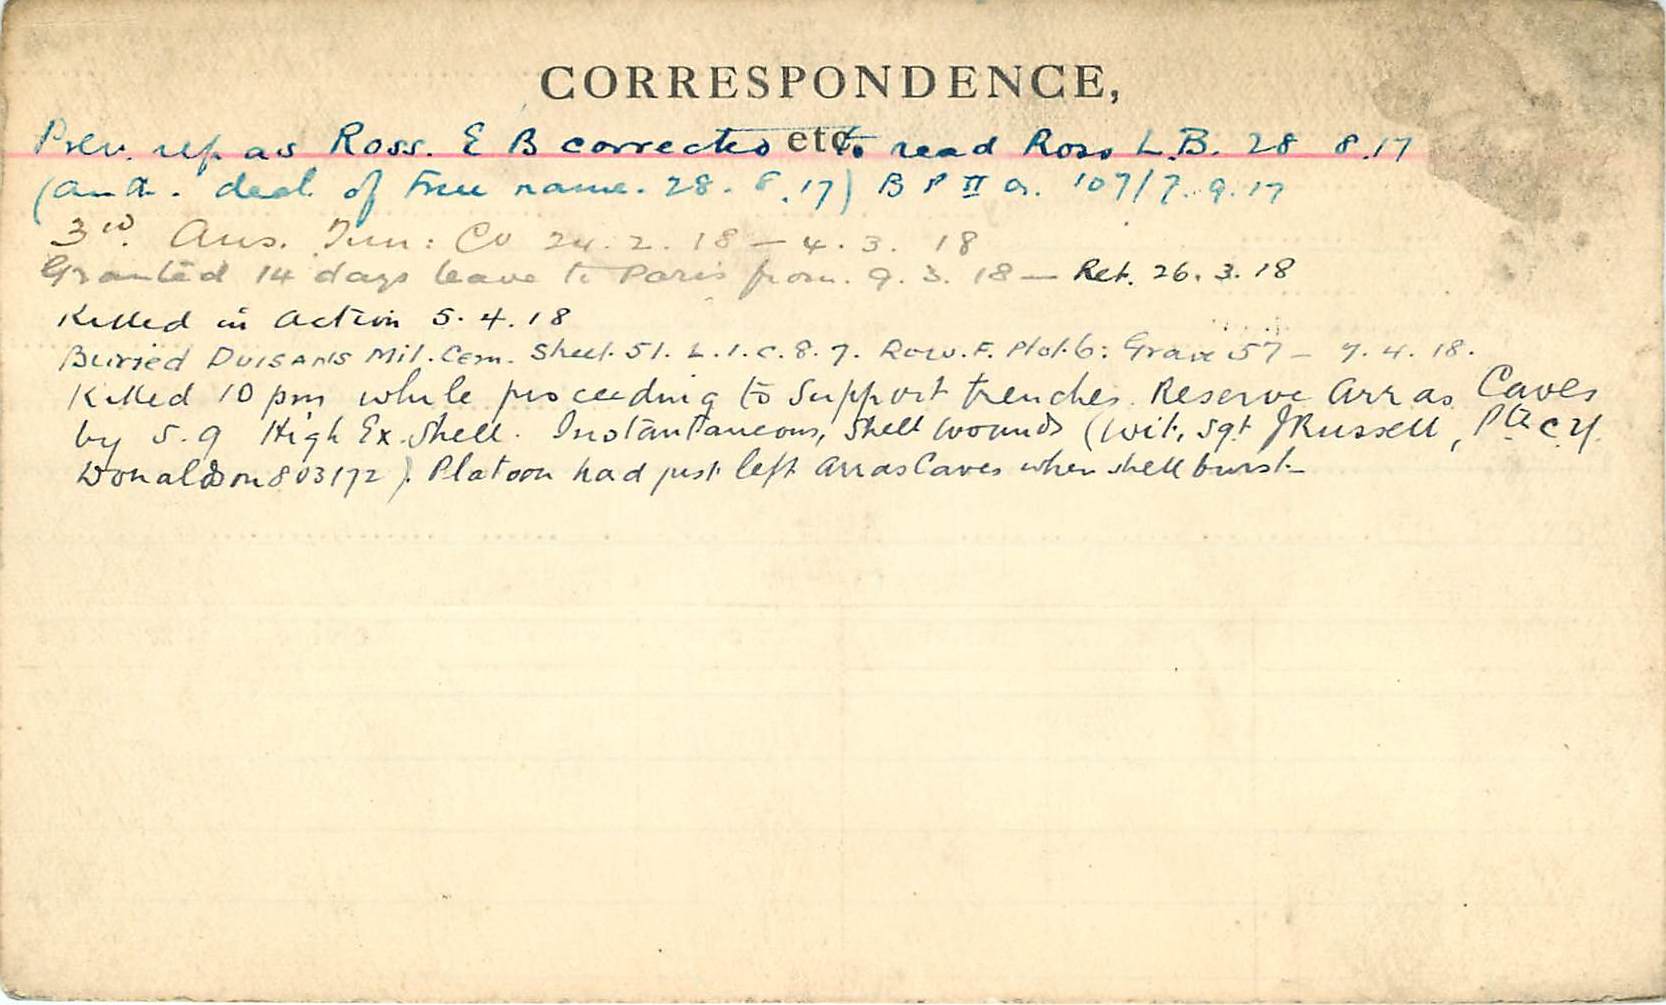 CORRESPONDENCE,
etc.
Prev. rep as Ross. E B corrected to read Ross L.B. 28 8.17
(auth. decl. of true name. 28. 8.17) B P II O. 107/7.9.17
3rd. Aus. Tun: Co 24.2.18 - 4.3.18
Granted 14 days leave to Paris from. 9.3.18 - Ret. 26.3.18
Killed in action 5.4.18
Buried DUISANS Mil. Cem. Sheet. 51. L.1.c.8.7. Row. F. Plot. 6: Grave 57 - 7.4.18.
Killed 10 pm while proceeding to support trenches. Reserve Arras Caves
by 5.9 High Ex. Shell. Instantaneous, Shell wounds (Wit. Sgt J Russell, Pte C Y
Donaldson 803172). Platoon had just left Arras Caves when shell burst-